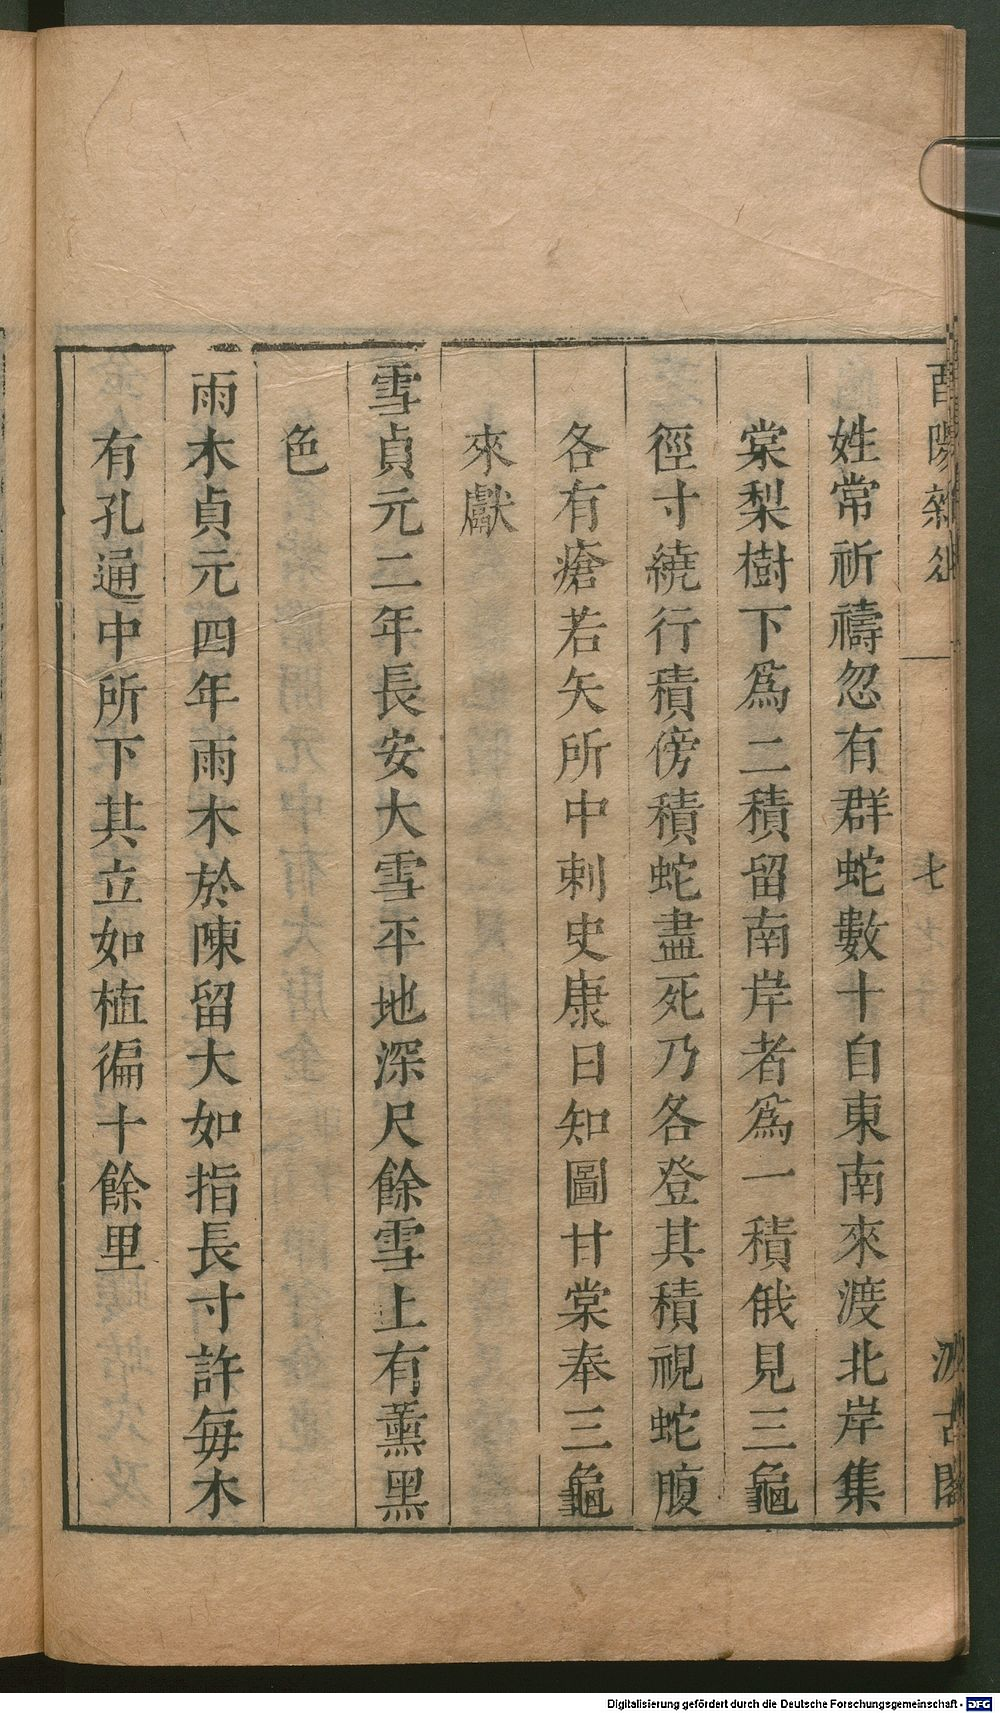 酉陽雜俎
七
汲古閣
姓常祈禱忽有群蛇數十自東南來渡北岸集
棠梨樹下爲二積留南岸者爲一積俄見三龜
徑寸繞行積傍積蛇盡死乃各登其積視蛇腹
各有瘡若矢所中刺史康日知圖甘棠奉三龜
來獻
雪貞元二年長安大雪平地深尺餘雪上有薰黑
色
雨木貞元四年雨木於陳留大如指長寸許每木
有孔通中所下其立如植徧十餘里
Digitalisierung gefördert durch die Deutsche Forschungsgemeinschaft - DFG